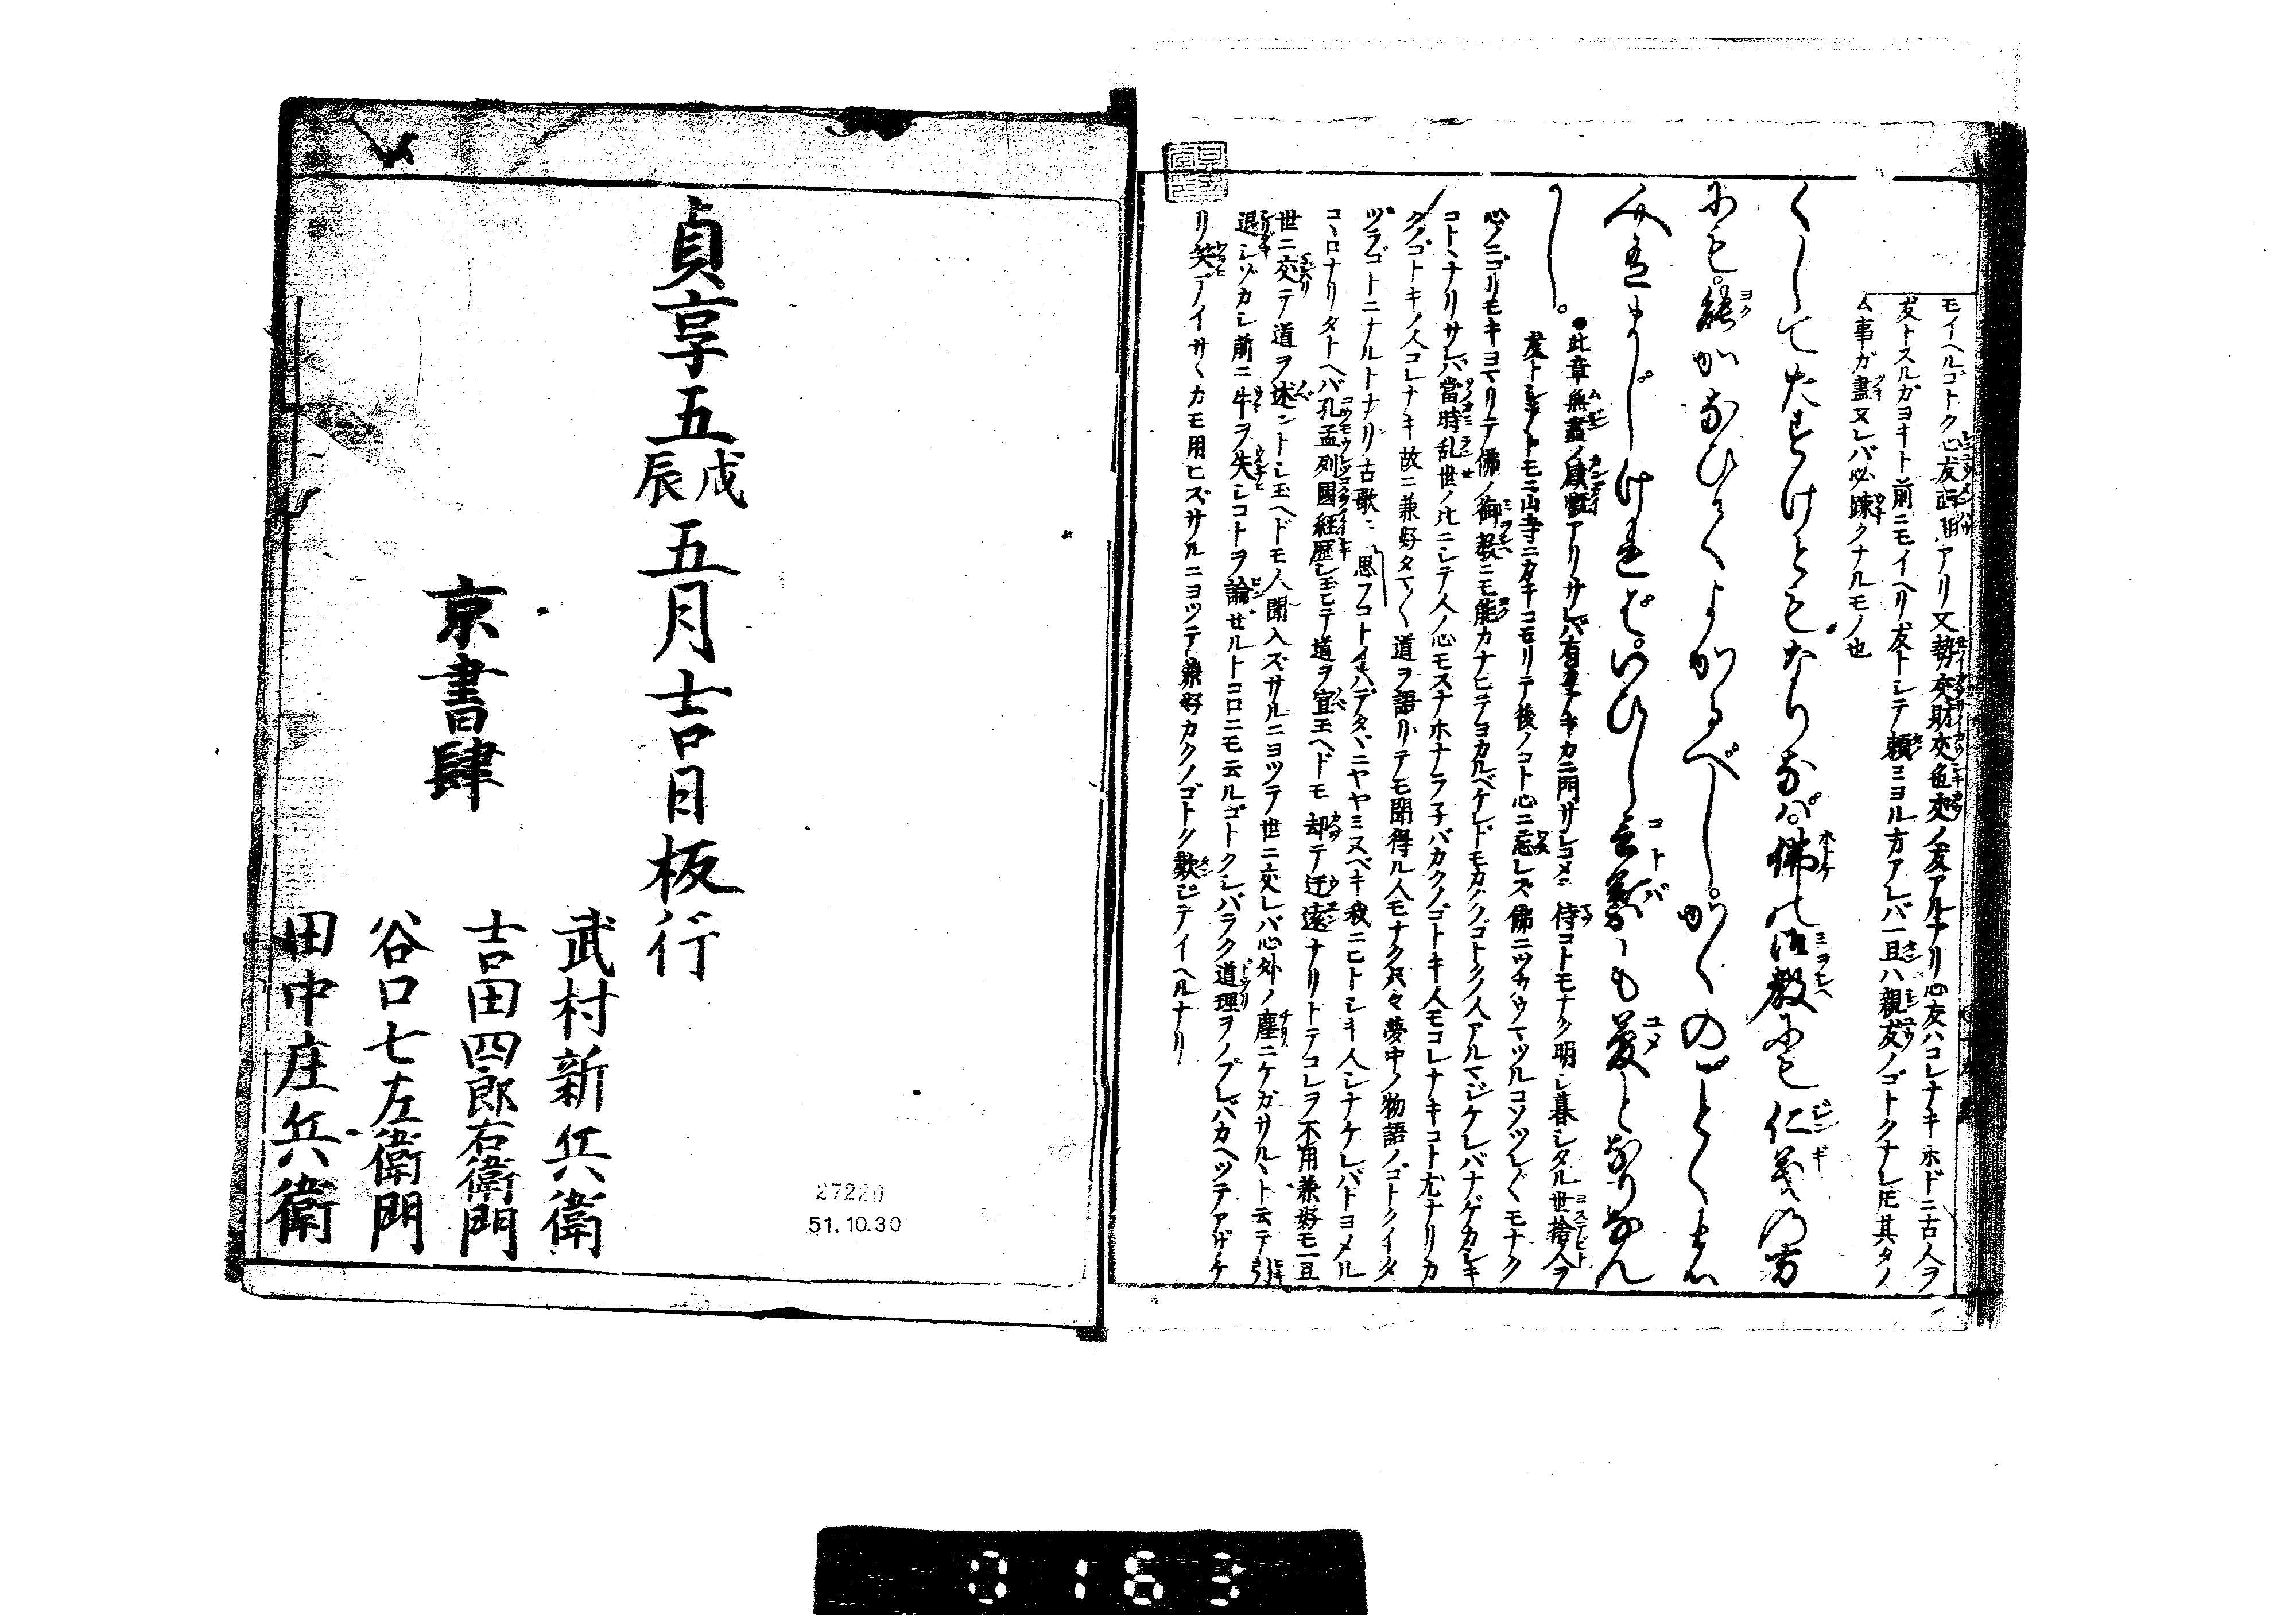 モイヘルゴトク心友面旧アリ又勢交財交色交ノ友アルナリ心友ハコレナキホドニ古人ヲ
友トスルガヨキト前ニモイヘリ友トシテ頼ミヨル方アレバ一旦ハ親友ノゴトクナレ𪜈其タノ
ム事ガ盡ヌレバ必疎クナルモノ也
くしてたすけともなりなば。佛の御教にも仁義の方
にも。能かなひてよかるべし。かくのごとくすれ
人有まじければ。いひし言葉も夢となりなん
かし。
●此章無盡ノ感慨アリサレバ有
友トシテトモニ山寺ニカキコモリテ後ノコト心ニ忘レズ佛ニツカウマツルコソツレ〴〵モナク
心ノニゴリモキヨマリテ佛ノ御教ニモ能カナヒテヨカルベケレドモカクノゴトクノ人アルマジケレバナゲカシキ
コトヽナリサレバ當時乱世ノ比ニシテ人ノ心モスナホナラ子バカクノゴトキ人モコレナキコト尤ナリカ
クノゴトキノ人コレナキ故ニ兼好タマ〳〵道ヲ語リテモ聞得ル人モナク只々夢中ノ物語ノゴトクイタ
ヅラゴトニナルトナリ古歌ニ 思フコトイハデタヾニヤヤミヌベキ我ニヒトシキ人シナケレバトヨメル
コヽロナリタトヘバ孔孟列國経歴シ玉ヒテ道ヲ宣玉ヘドモ却テ迂遠ナリトテコレヲ不用兼好モ一旦
世ニ交テ道ヲ述ントシ玉ヘドモ人聞入ズサルニヨツテ世ニ交レバ心外ノ塵ニケガサルヽト云テ引
退シゾカシ前ニ牛ヲ失シコトヲ論ゼルトコロニモ云ルゴトクシバラク道理ヲノブレバカヘツテアザケ
リ笑テイサヽカモ用ヒズサルニヨツテ兼好カクノゴトク歎ジテイヘルナリ
貞享五戊辰五月吉日板行
京書肆
武村新兵衛
吉田四郎右衛門
谷口七左衛門
田中庄兵衛
27220
51.10.30
0163